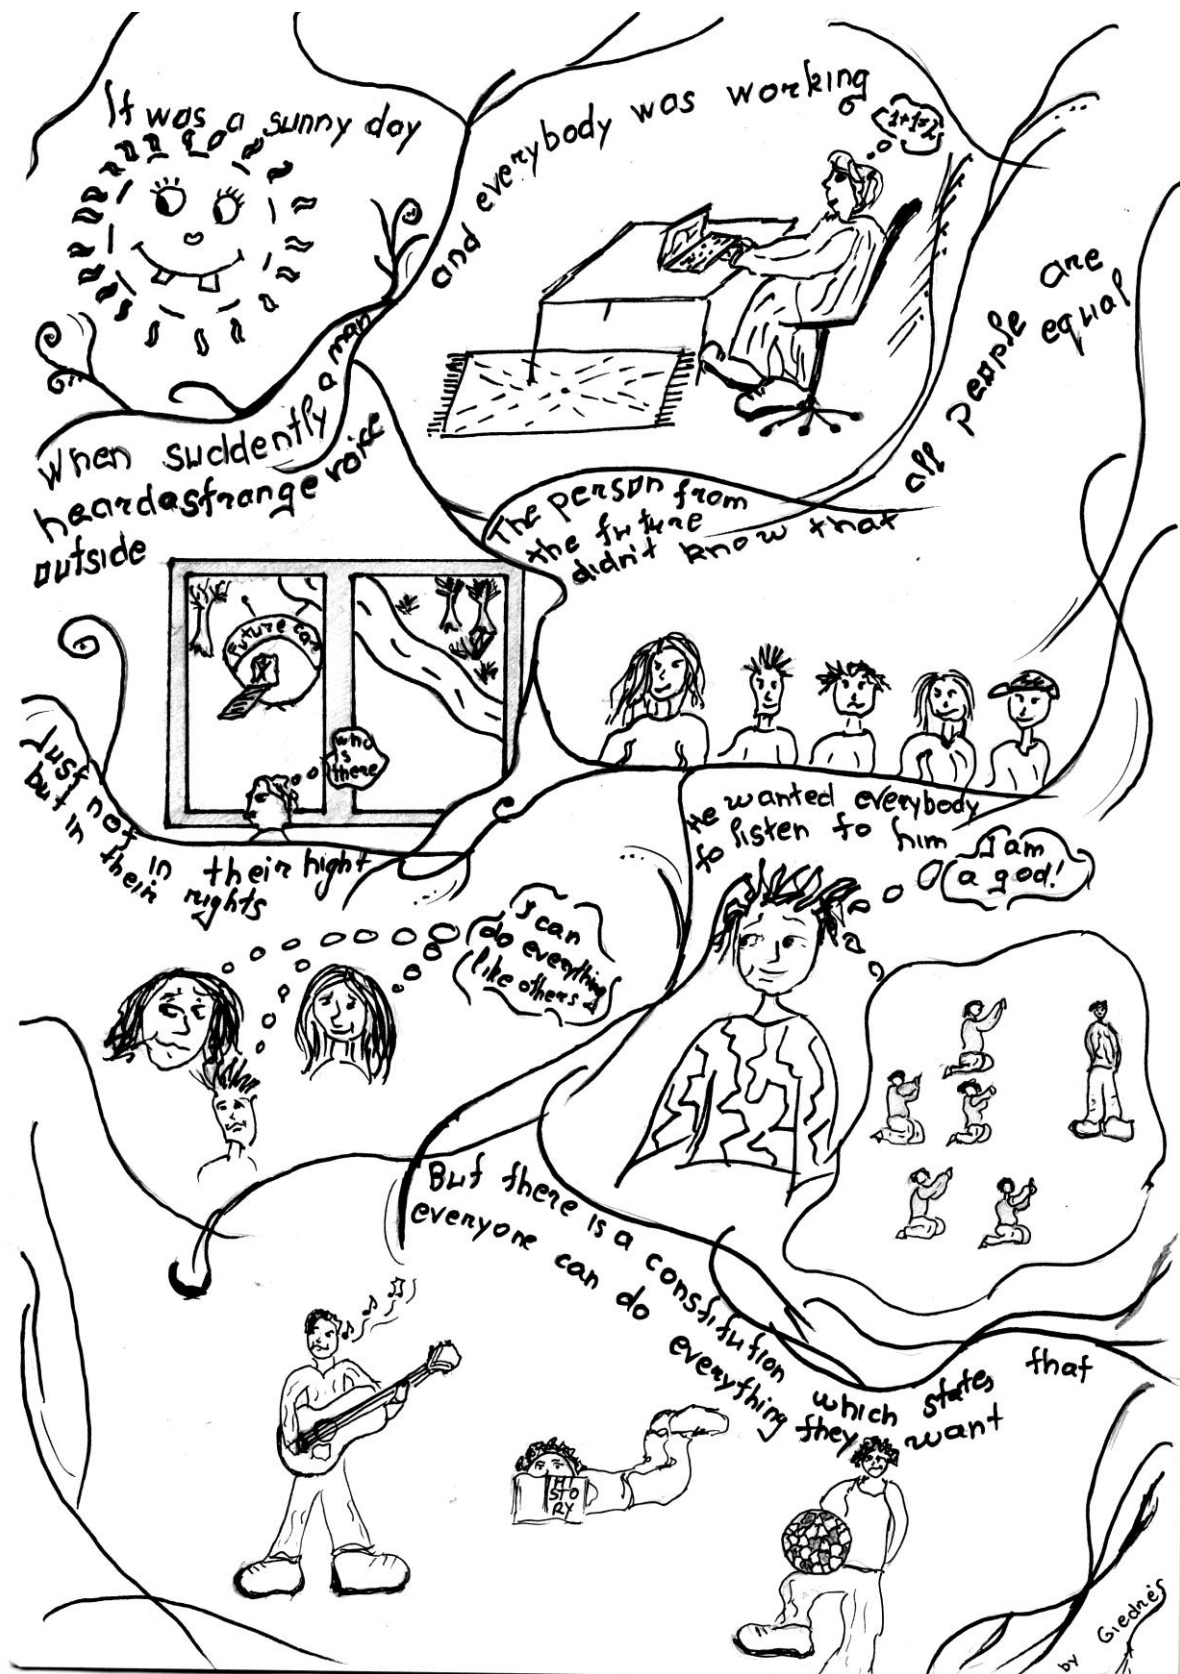 It was a sunny day
and everybody was working
When suddently a man
heard a strange voice
outside
Future car
who
is
there
The person from
the future
didn't know that
all people are
equal
Just not in their hight
but in their rights
I can
do everything
like others
He wanted everybody
to listen to him
I am
a god!
But there is a constitution which states that
everyone can do everything they want
HI
STO
RY
by Giedrės